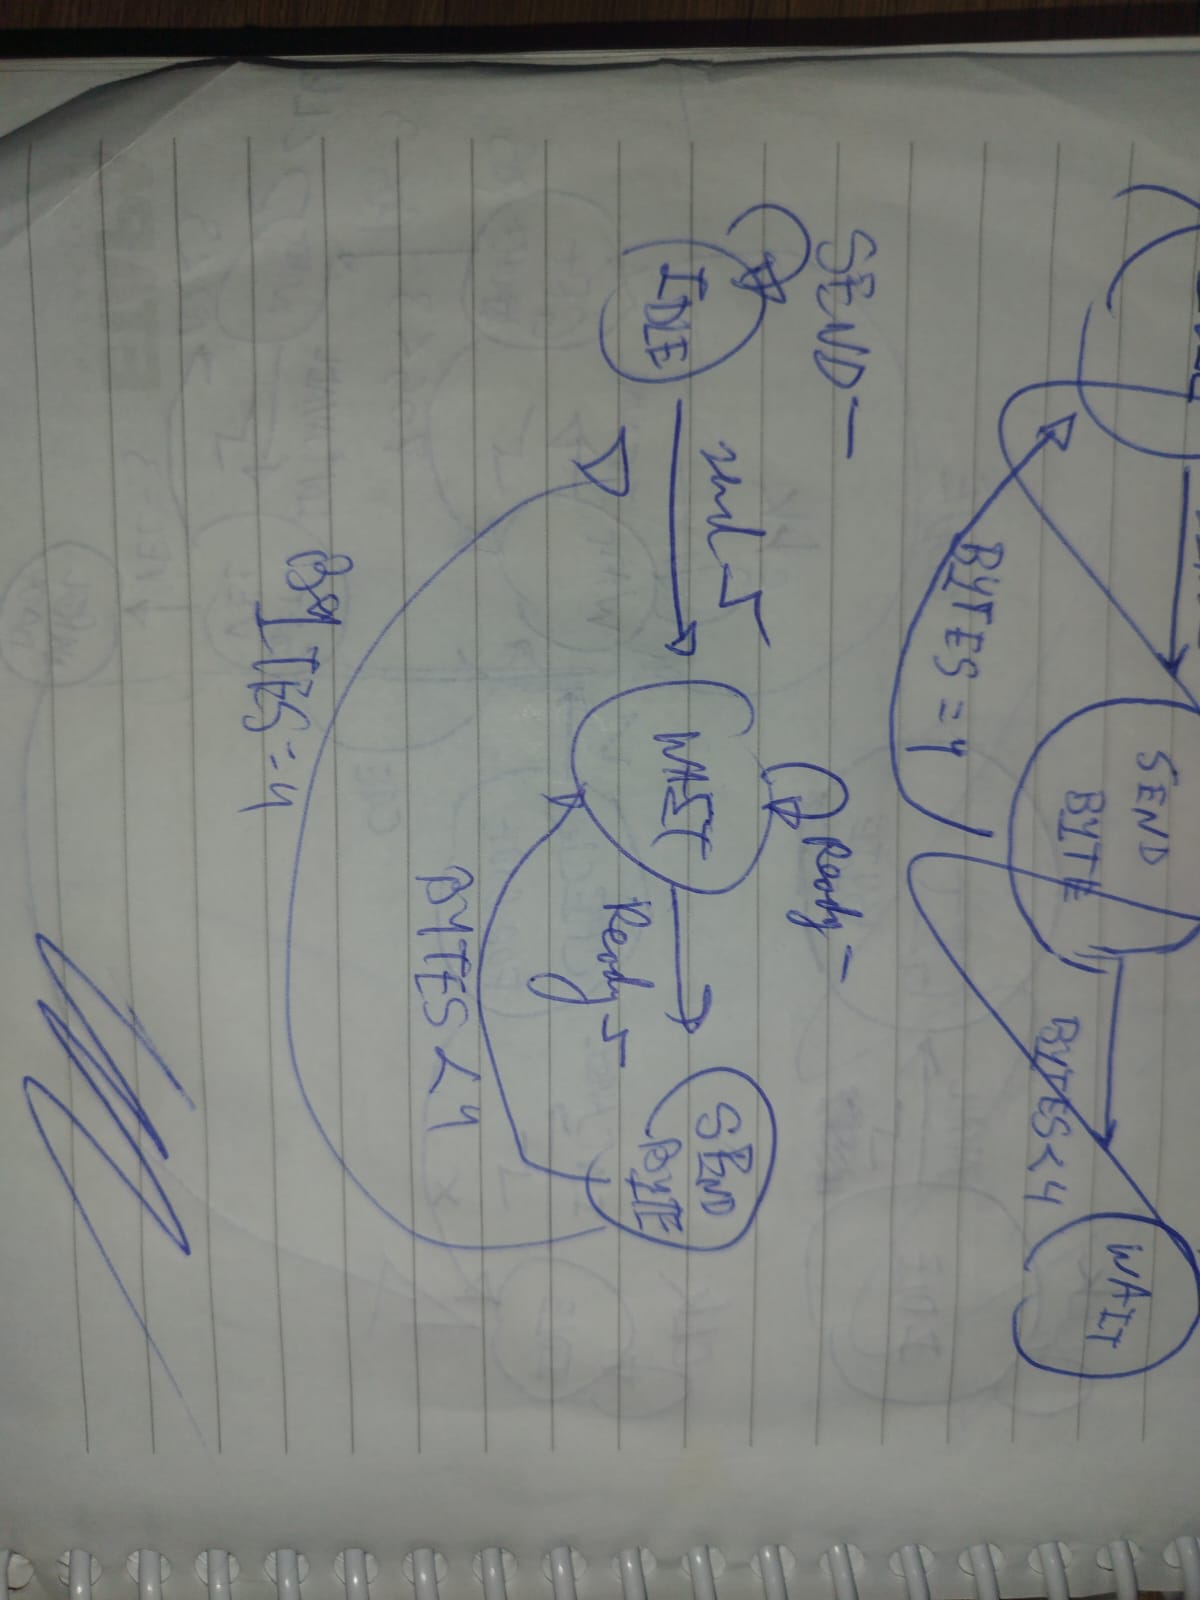 SEND
BYTE
WAIT
BYTES < 4
BYTES = 4
SEND -
IDLE
send
WAIT
Ready -
Ready
SEND
BYTE
BYTES < 4
BYTES = 4